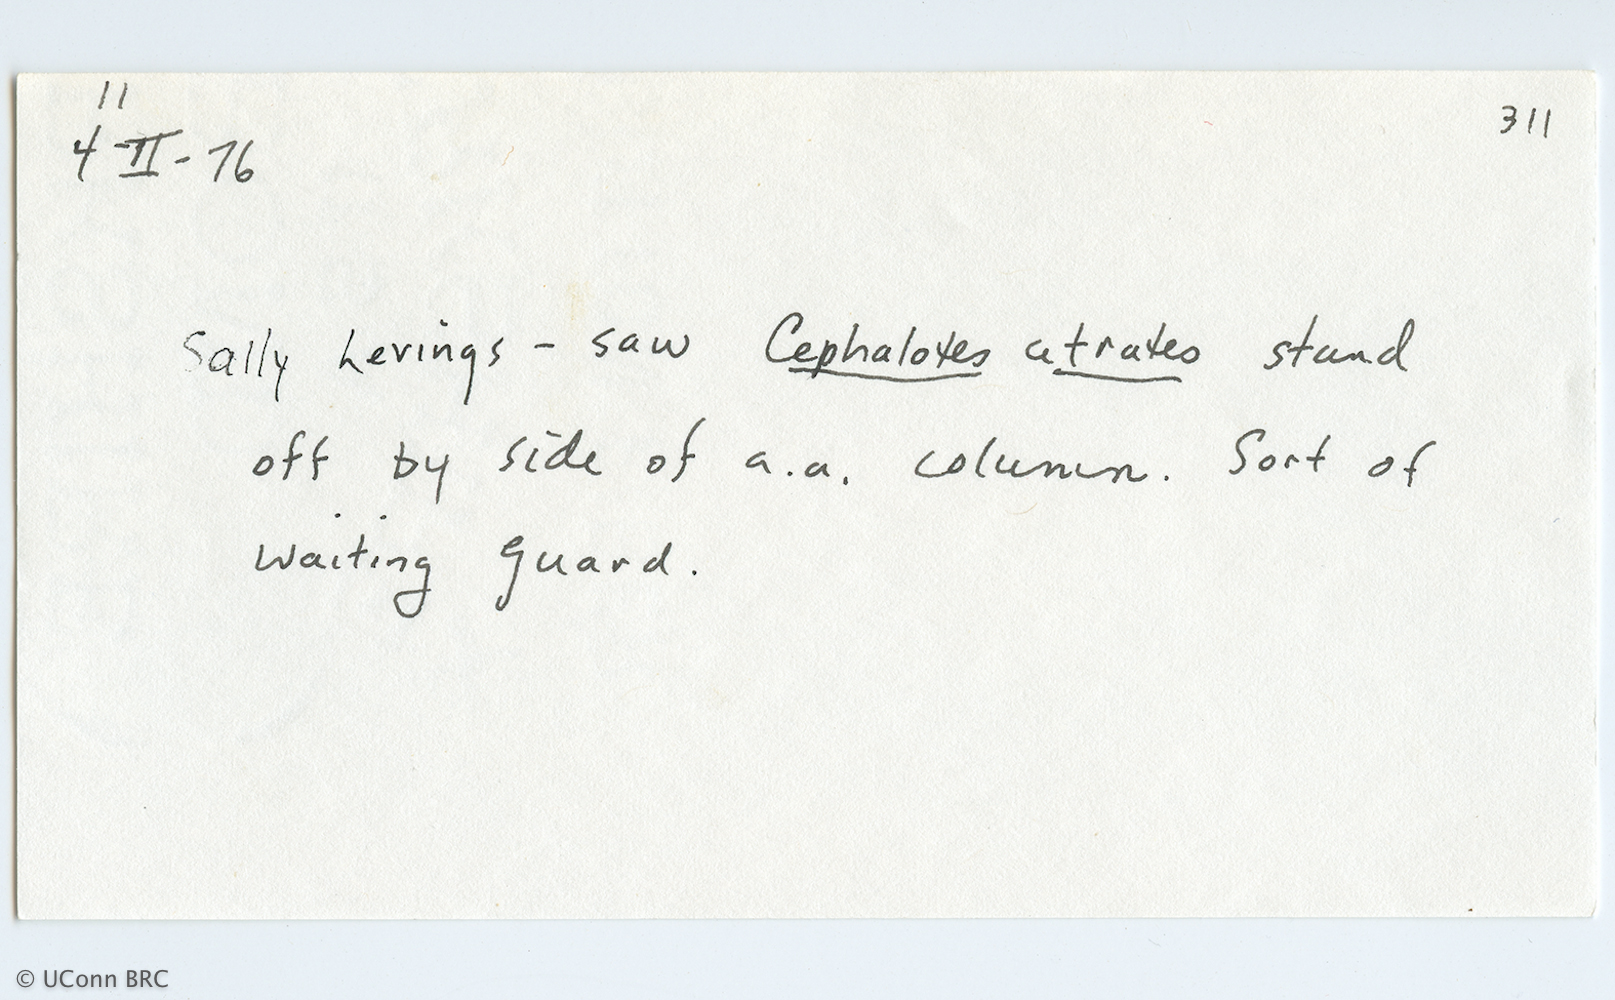 11
311
4-II-76
Sally Levings - saw Cephalotes atrates stand
off by side of a.a. column. Sort of
waiting guard.
© UConn BRC